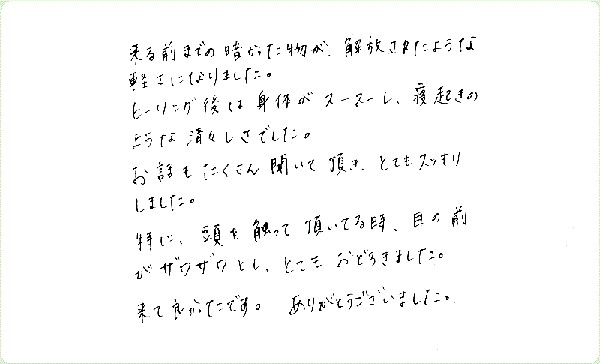 来る前までの暗かった物が、解放されたような
軽さになりました。
ヒーリング後は身体がスースーし、寝起きの
ような清々しさでした。
お話もたくさん聞いて頂き、とてもスッキリ
しました。
特に、頭を触って頂いてる時、目の前
がザワザワとし、とてもおどろきました。
来て良かったです。 ありがとうございました。